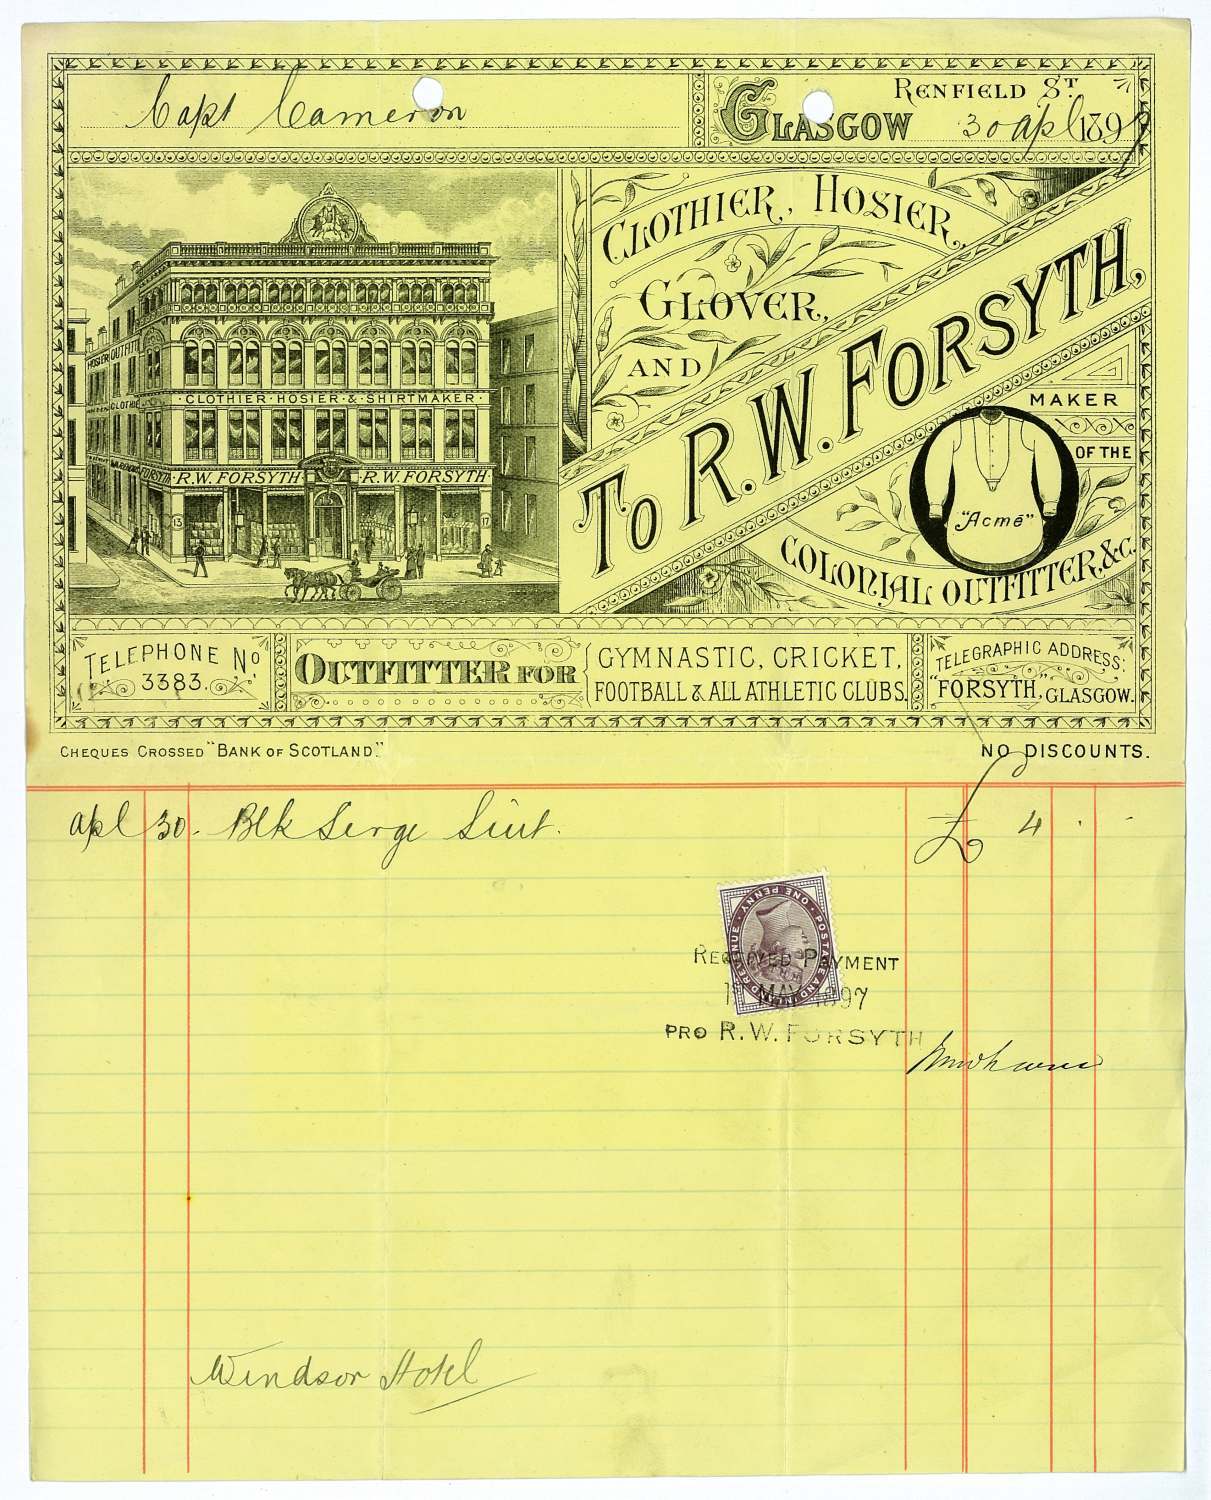 Capt Cameron
RENFIELD ST.
GLASGOW 30 apl 1897
CLOTHIER, HOSIER,
GLOVER,
AND
TO R. W. FORSYTH,
MAKER
OF THE
"Acmé"
COLONIAL OUTFITTER, &C.
HOSIER OUTFIT
CLOTHIE
· CLOTHIER · HOSIER · & · SHIRTMAKER ·
FORSYTH · R. W. FORSYTH R. W. FORSYTH
13 17
TELEPHONE NO
3383.
OUTFITTER FOR
GYMNASTIC, CRICKET,
FOOTBALL & ALL ATHLETIC CLUBS.
TELEGRAPHIC ADDRESS:
"FORSYTH," GLASGOW.
CHEQUES CROSSED "BANK OF SCOTLAND."
NO DISCOUNTS.
apl 30. Blk Serge Suit. £ 4 . -
POSTAGE AND INLAND REVENUE · ONE PENNY
RECEIVED PAYMENT
1st MAY 1897
PRO R. W. FORSYTH
Windsor Hotel